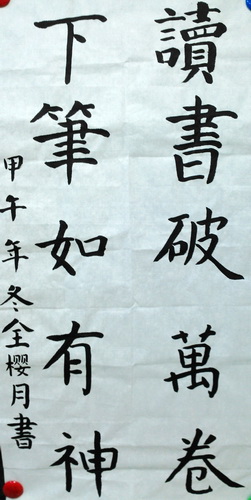 讀書破萬卷
下筆如有神
甲午年冬全櫻月書